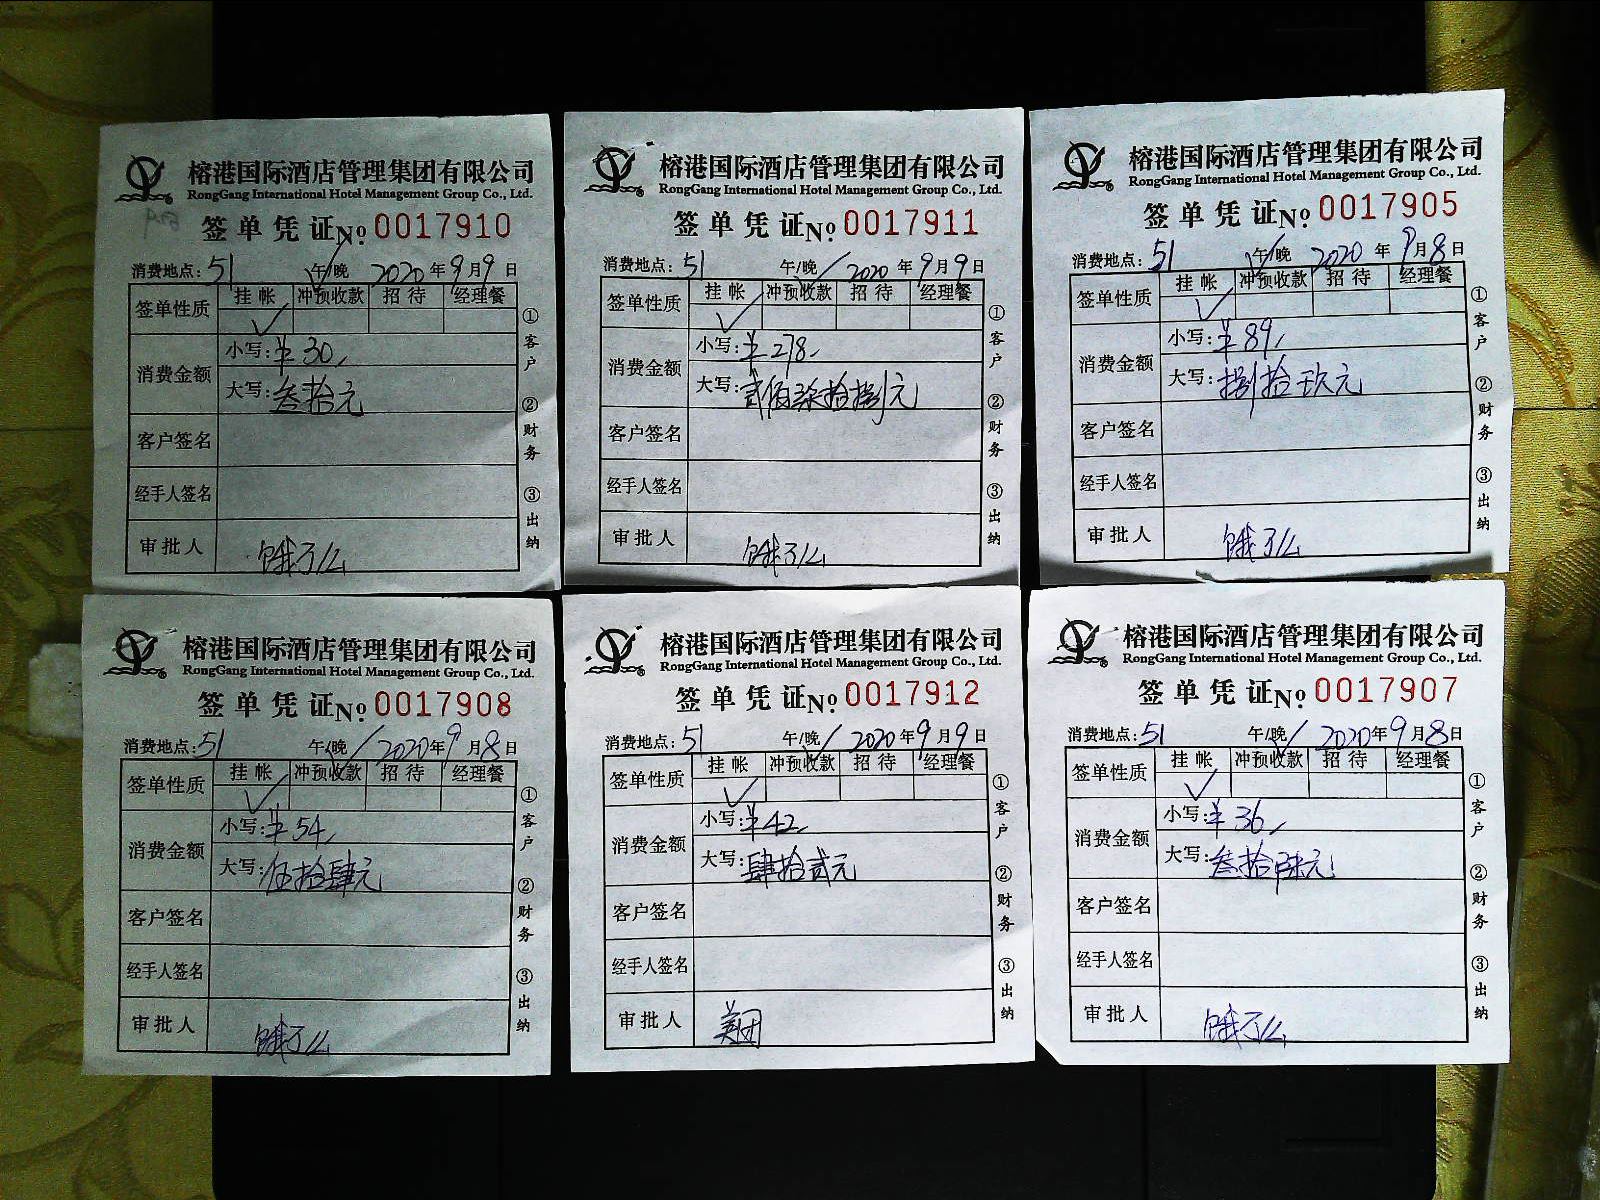 榕港国际酒店管理集团有限公司
RongGang International Hotel Management Group Co., Ltd.
签单凭证No 0017910
消费地点:51 午/晚 2020年9月9日
签单性质 挂帐 冲预收款 招待 经理餐
✓
消费金额 小写:¥30
大写:叁拾元
客户签名
经手人签名
审批人 饿了么
①客户 ②财务 ③出纳
榕港国际酒店管理集团有限公司
RongGang International Hotel Management Group Co., Ltd.
签单凭证No 0017911
消费地点:51 午/晚 2020年9月9日
签单性质 挂帐 冲预收款 招待 经理餐
✓
消费金额 小写:¥278
大写:贰佰柒拾捌元
客户签名
经手人签名
审批人 饿了么
①客户 ②财务 ③出纳
榕港国际酒店管理集团有限公司
RongGang International Hotel Management Group Co., Ltd.
签单凭证No 0017905
消费地点:51 午/晚 2020年9月8日
签单性质 挂帐 冲预收款 招待 经理餐
✓
消费金额 小写:¥89
大写:捌拾玖元
客户签名
经手人签名
审批人 饿了么
①客户 ②财务 ③出纳
榕港国际酒店管理集团有限公司
RongGang International Hotel Management Group Co., Ltd.
签单凭证No 0017908
消费地点:51 午/晚 2020年9月8日
签单性质 挂帐 冲预收款 招待 经理餐
✓
消费金额 小写:¥54
大写:伍拾肆元
客户签名
经手人签名
审批人 饿了么
①客户 ②财务 ③出纳
榕港国际酒店管理集团有限公司
RongGang International Hotel Management Group Co., Ltd.
签单凭证No 0017912
消费地点:51 午/晚 2020年9月9日
签单性质 挂帐 冲预收款 招待 经理餐
✓
消费金额 小写:¥42
大写:肆拾贰元
客户签名
经手人签名
审批人 美团
①客户 ②财务 ③出纳
榕港国际酒店管理集团有限公司
RongGang International Hotel Management Group Co., Ltd.
签单凭证No 0017907
消费地点:51 午/晚 2020年9月8日
签单性质 挂帐 冲预收款 招待 经理餐
✓
消费金额 小写:¥36
大写:叁拾陆元
客户签名
经手人签名
审批人 饿了么
①客户 ②财务 ③出纳